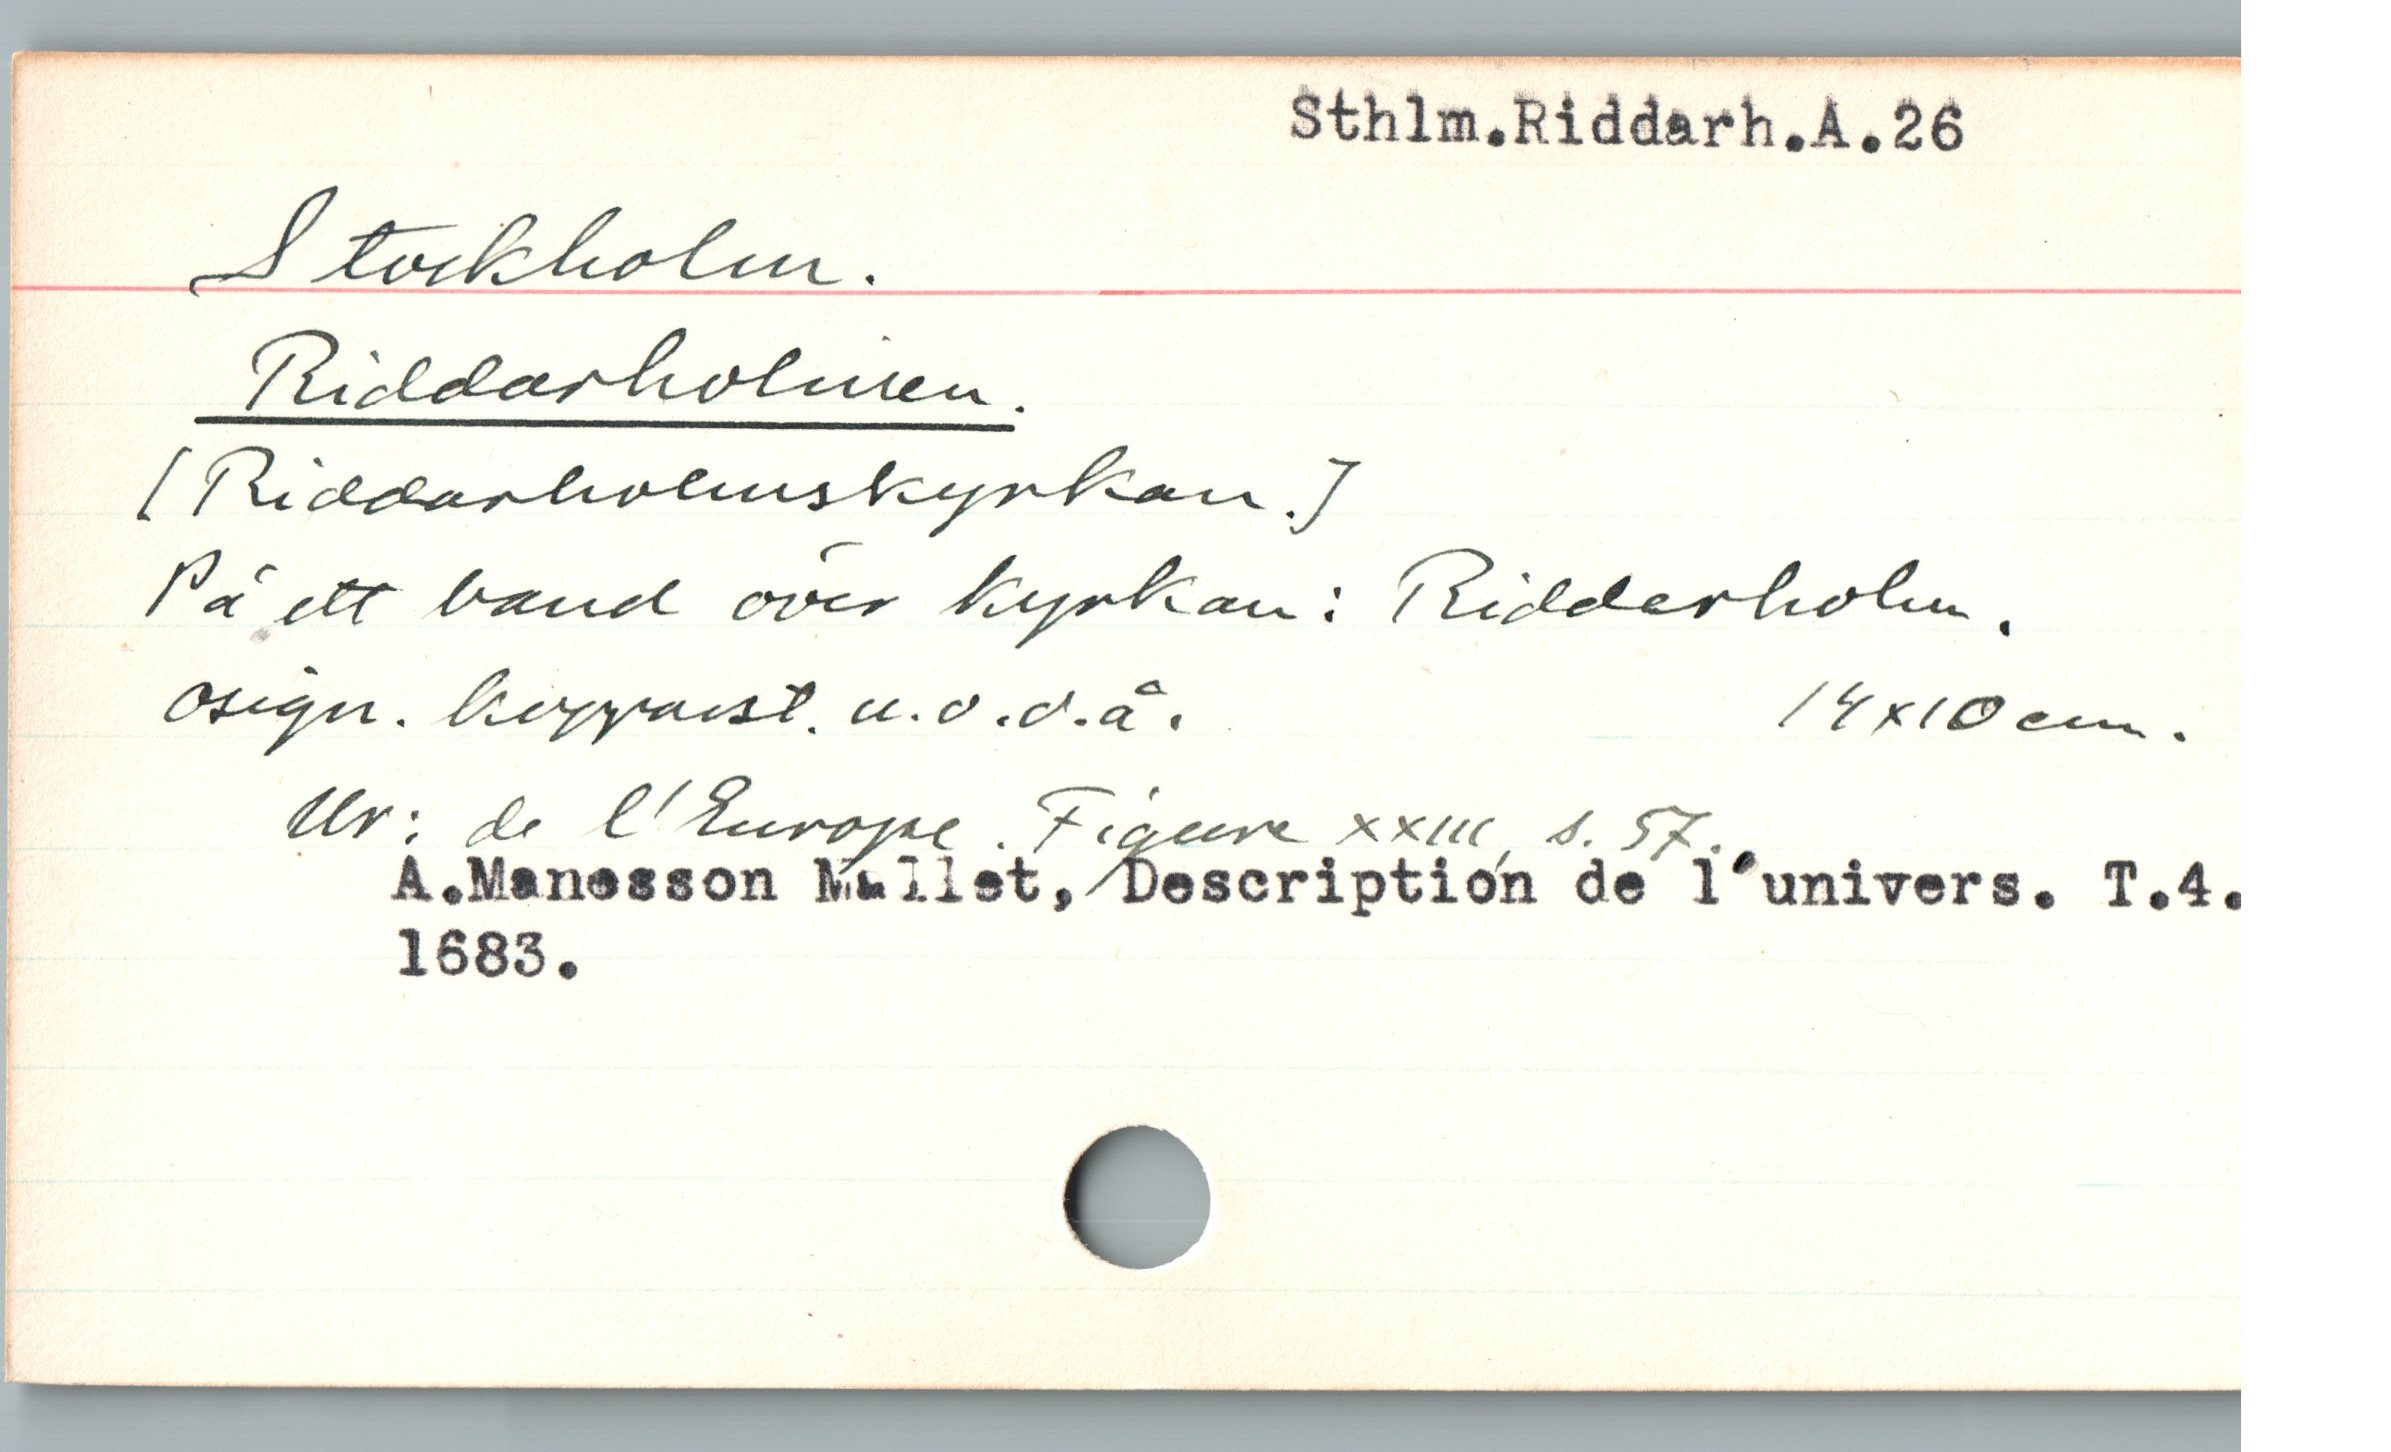 Sthlm.Riddarh.A.26
Stockholm.
Riddarholmen.
[Riddarholmskyrkan.]
På ett band över kyrkan: Ridderholm.
osign. kopparst. u.o.o.å. 14x10 cm.
Ur: de l'Europe. Figure XXIII, s. 57.
A.Manesson Mallet, Description de l'univers. T.4.
1683.